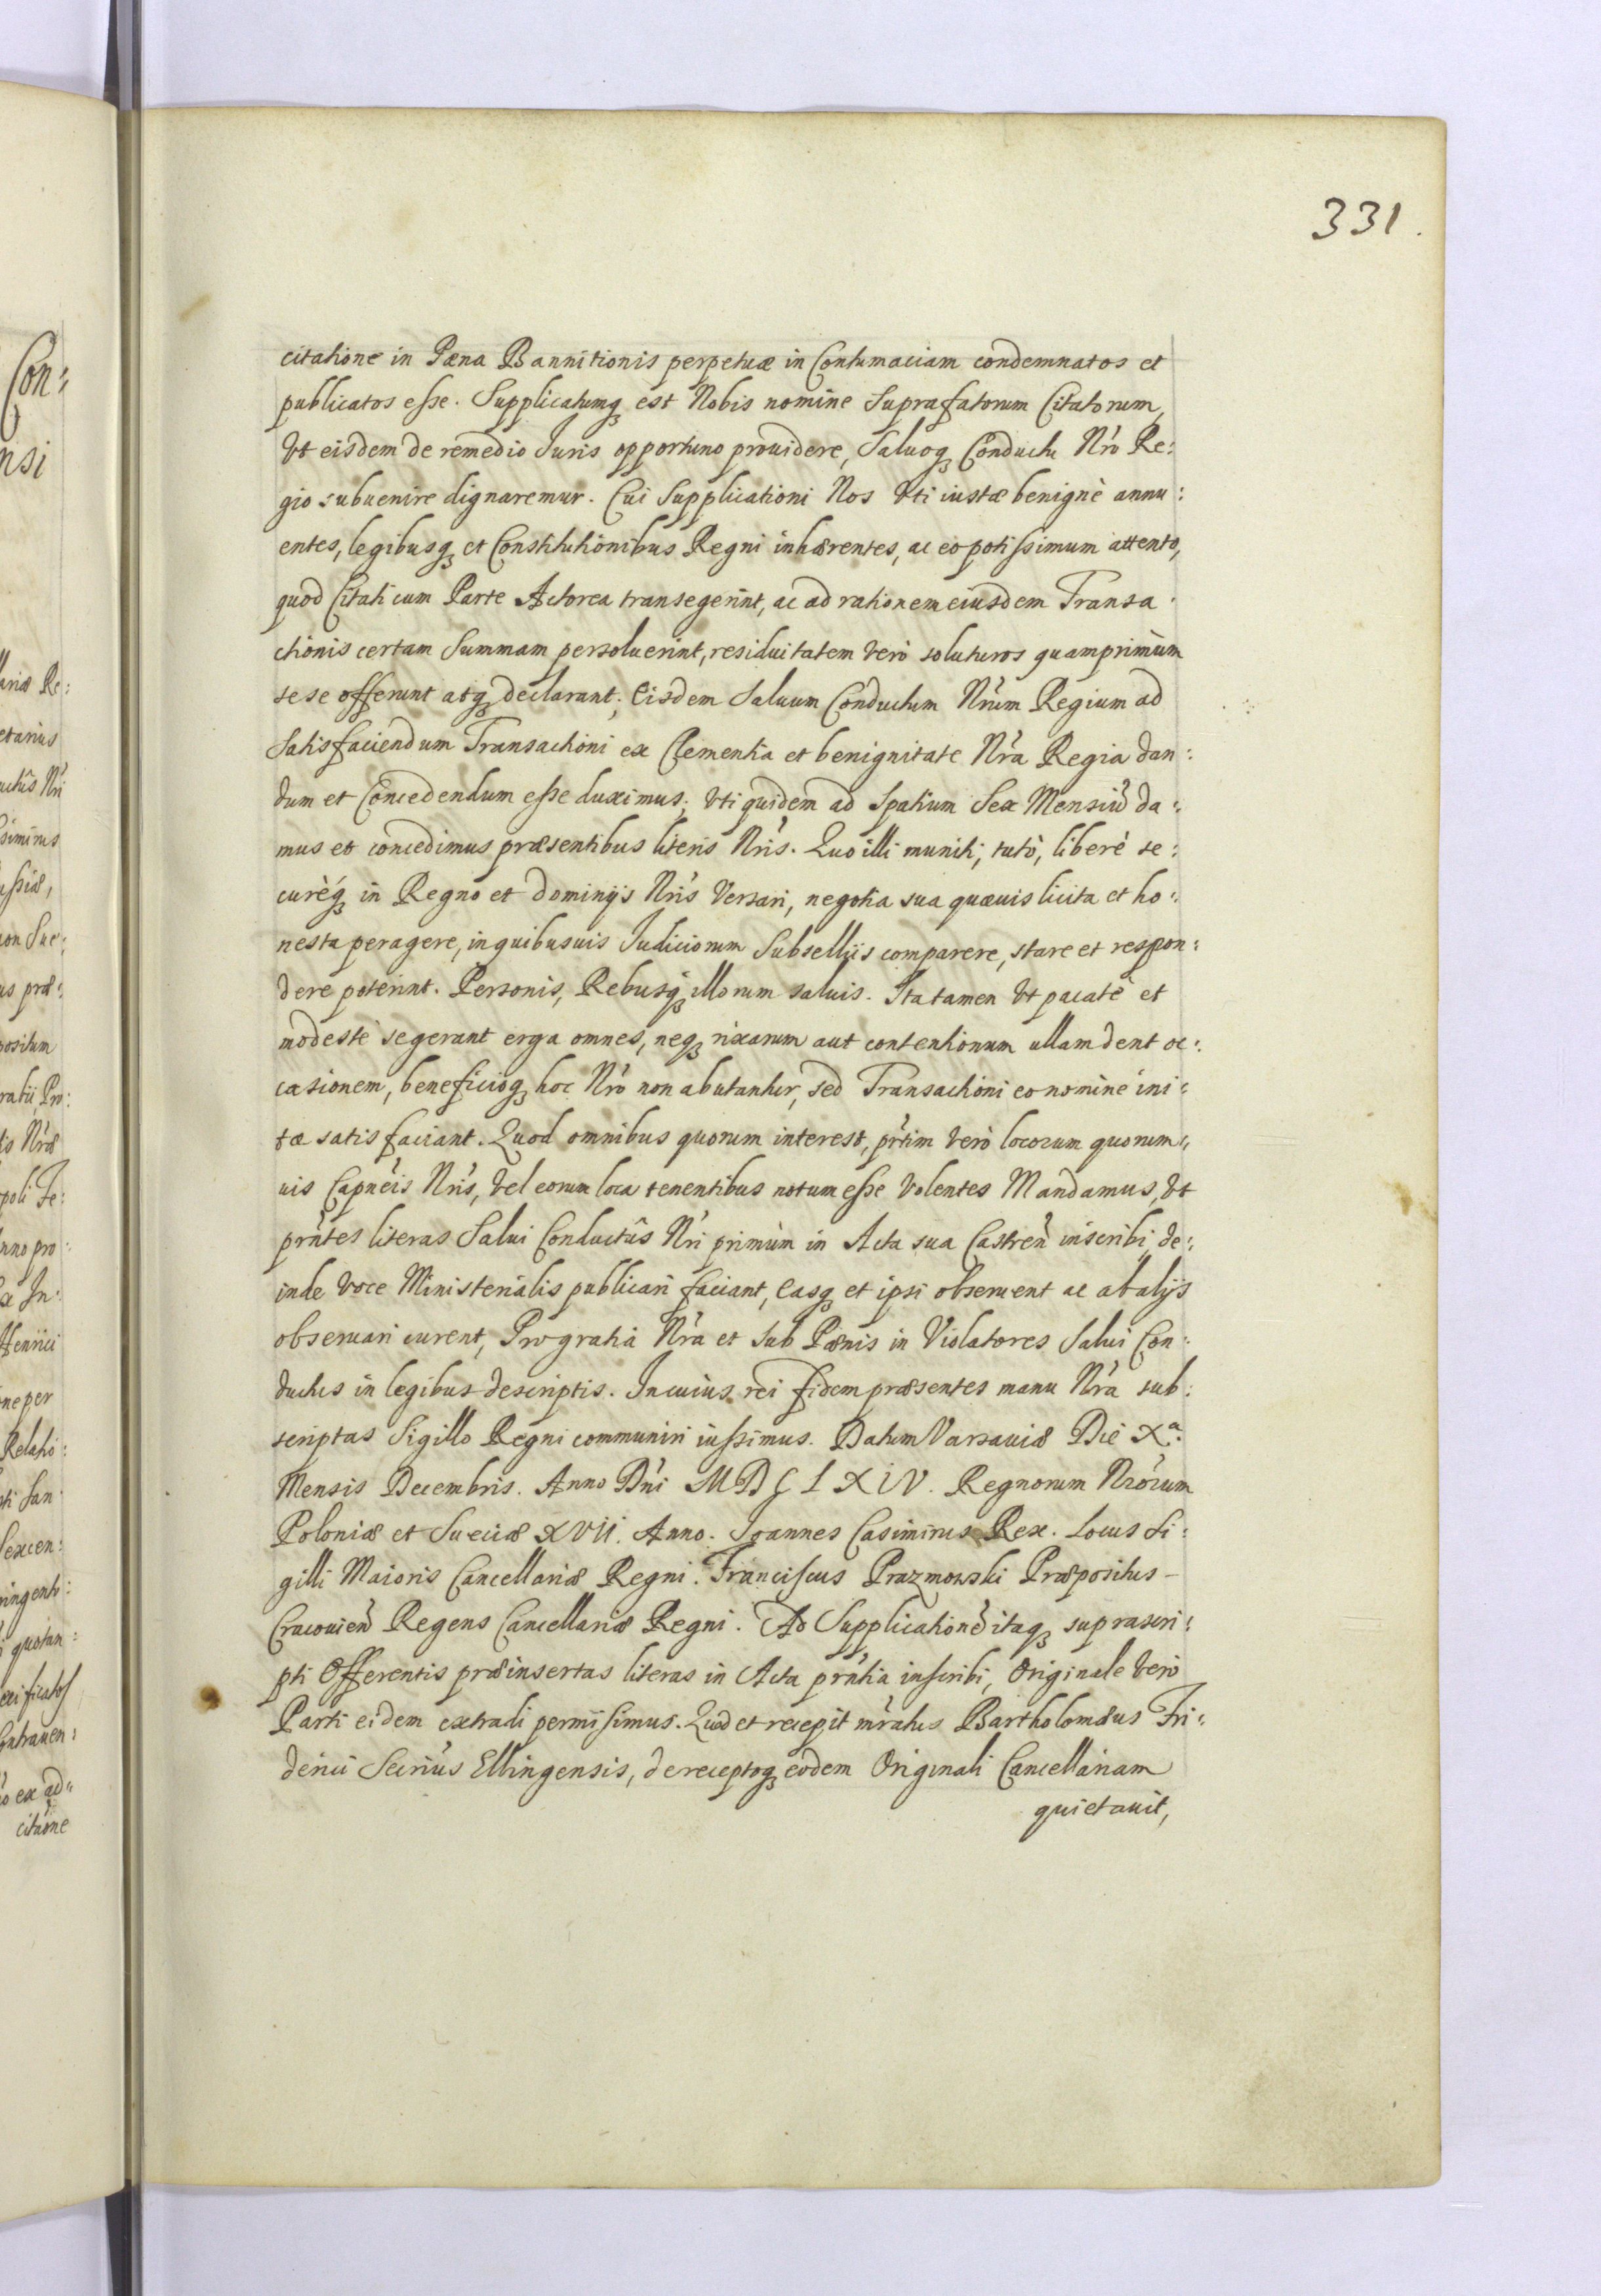 331.
citatione in Pæna Bannitionis perpetuæ in Contumaciam condemnatos et
publicatos esse. Supplicatumq; est Nobis nomine Suprafatorum Citatorum,
Vt eisdem de remedio Iuris opportuno prouidere, Saluoq; Conductu Nrõ Re:
gio subuenire dignaremur. Cui Supplicationi Nos Vti iustæ benignè annu:
entes, legibusq; et Constitutionibus Regni inhærentes, ac eo potissimum attento,
quod Citati cum Parte Actorea transegerint, ac ad rationem eiusdem Transa:
ctionis certam Summam persoluerint, residuitatem verò soluturos quamprimùm
sese offerunt atq; declarant; Eisdem Saluum Conductum Nrũm Regium ad
Satisfaciendum Transactioni ex Clementia et benignitate Nrã Regia dan:
dum et Concedendum esse duximus; Vti quidem ad Spatium Sex Mensiũ da:
mus et concedimus præsentibus literis Nrĩs. Quo illi muniti, tutò, liberè se:
curèq; in Regno et Dominijs Nrĩs Versari, negotia sua quæuis licita et ho:
nesta peragere, in quibusuis Iudiciorum Subsellijs comparere, stare et respon:
dere poterint. Personis, Rebusq; illorum saluis. Ita tamen Vt pacatè et
modestè se gerant erga omnes, neq; rixarum aut contentionum ullam dent oc:
casionem, beneficioq; hoc Nrõ non abutantur, sed Transactioni eo nomine ini:
tæ satisfaciant. Quod omnibus quorum interest, prtĩm verò locorum quorum:
uis Capnẽis Nrĩs, Vel eorum loca tenentibus notum esse Volentes Mandamus, Vt
prñtes literas Salui Conductûs Nrĩ primùm in Acta sua Castreñ inscribi, de:
inde voce Ministerialis publicari faciant, Easq; et ipsi obseruent ac ab alijs
obseruari curent, Pro gratia Nrã et sub Pænis in Violatores Salui Con:
ductus in legibus descriptis. In cuius rei fidem præsentes manu Nrã sub:
scriptas Sigillo Regni communiri iussimus. Datum Varsauiæ Die Xª.
Mensis Decembris. Anno Dnĩ MDCLXIV. Regnorum Nrõrum
Poloniæ et Sueciæ XVII. Anno. Ioannes Casimirus Rex. Locus Si:
gilli Maioris Cancellariæ Regni. Franciscus Prazmowski Præpositus –
Cracouień Regens Cancellariæ Regni. Ad Supplicationẽ itaq; suprascri:
pti Offerentis præinsertas literas in Acta prñtia inscribi, Originale verò
Parti eidem extradi permisimus. Quod et recepit mrãtus Bartholomæus Fri:
derici Secriũs Elbingensis, de receptoq; eodem Originali Cancellariam
quietauit,